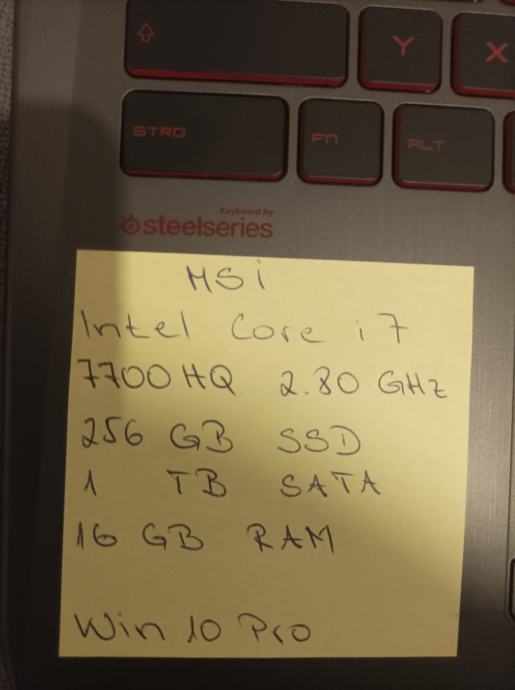 Y X
STRG FN ALT
Keyboard by
steelseries
MSi
Intel Core i7
7700 HQ 2.80 GHz
256 GB SSD
1 TB SATA
16 GB RAM
Win 10 Pro